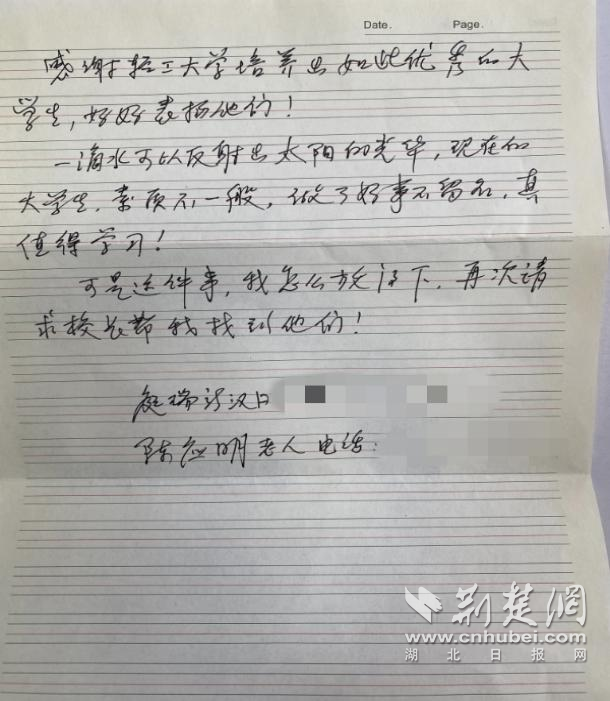 Date. Page.
感谢轻工大学培养出如此优秀的大
学生，好好表扬他们！
一滴水可以反射出太阳的光华，现在的
大学生，素质不一般，做了好事不留名，真
值得学习！
可是这件事，我怎么放得下，再次请
求校长帮我找到他们！
陈应明老人电话：
荆楚网
www.cnhubei.com
湖北日报网